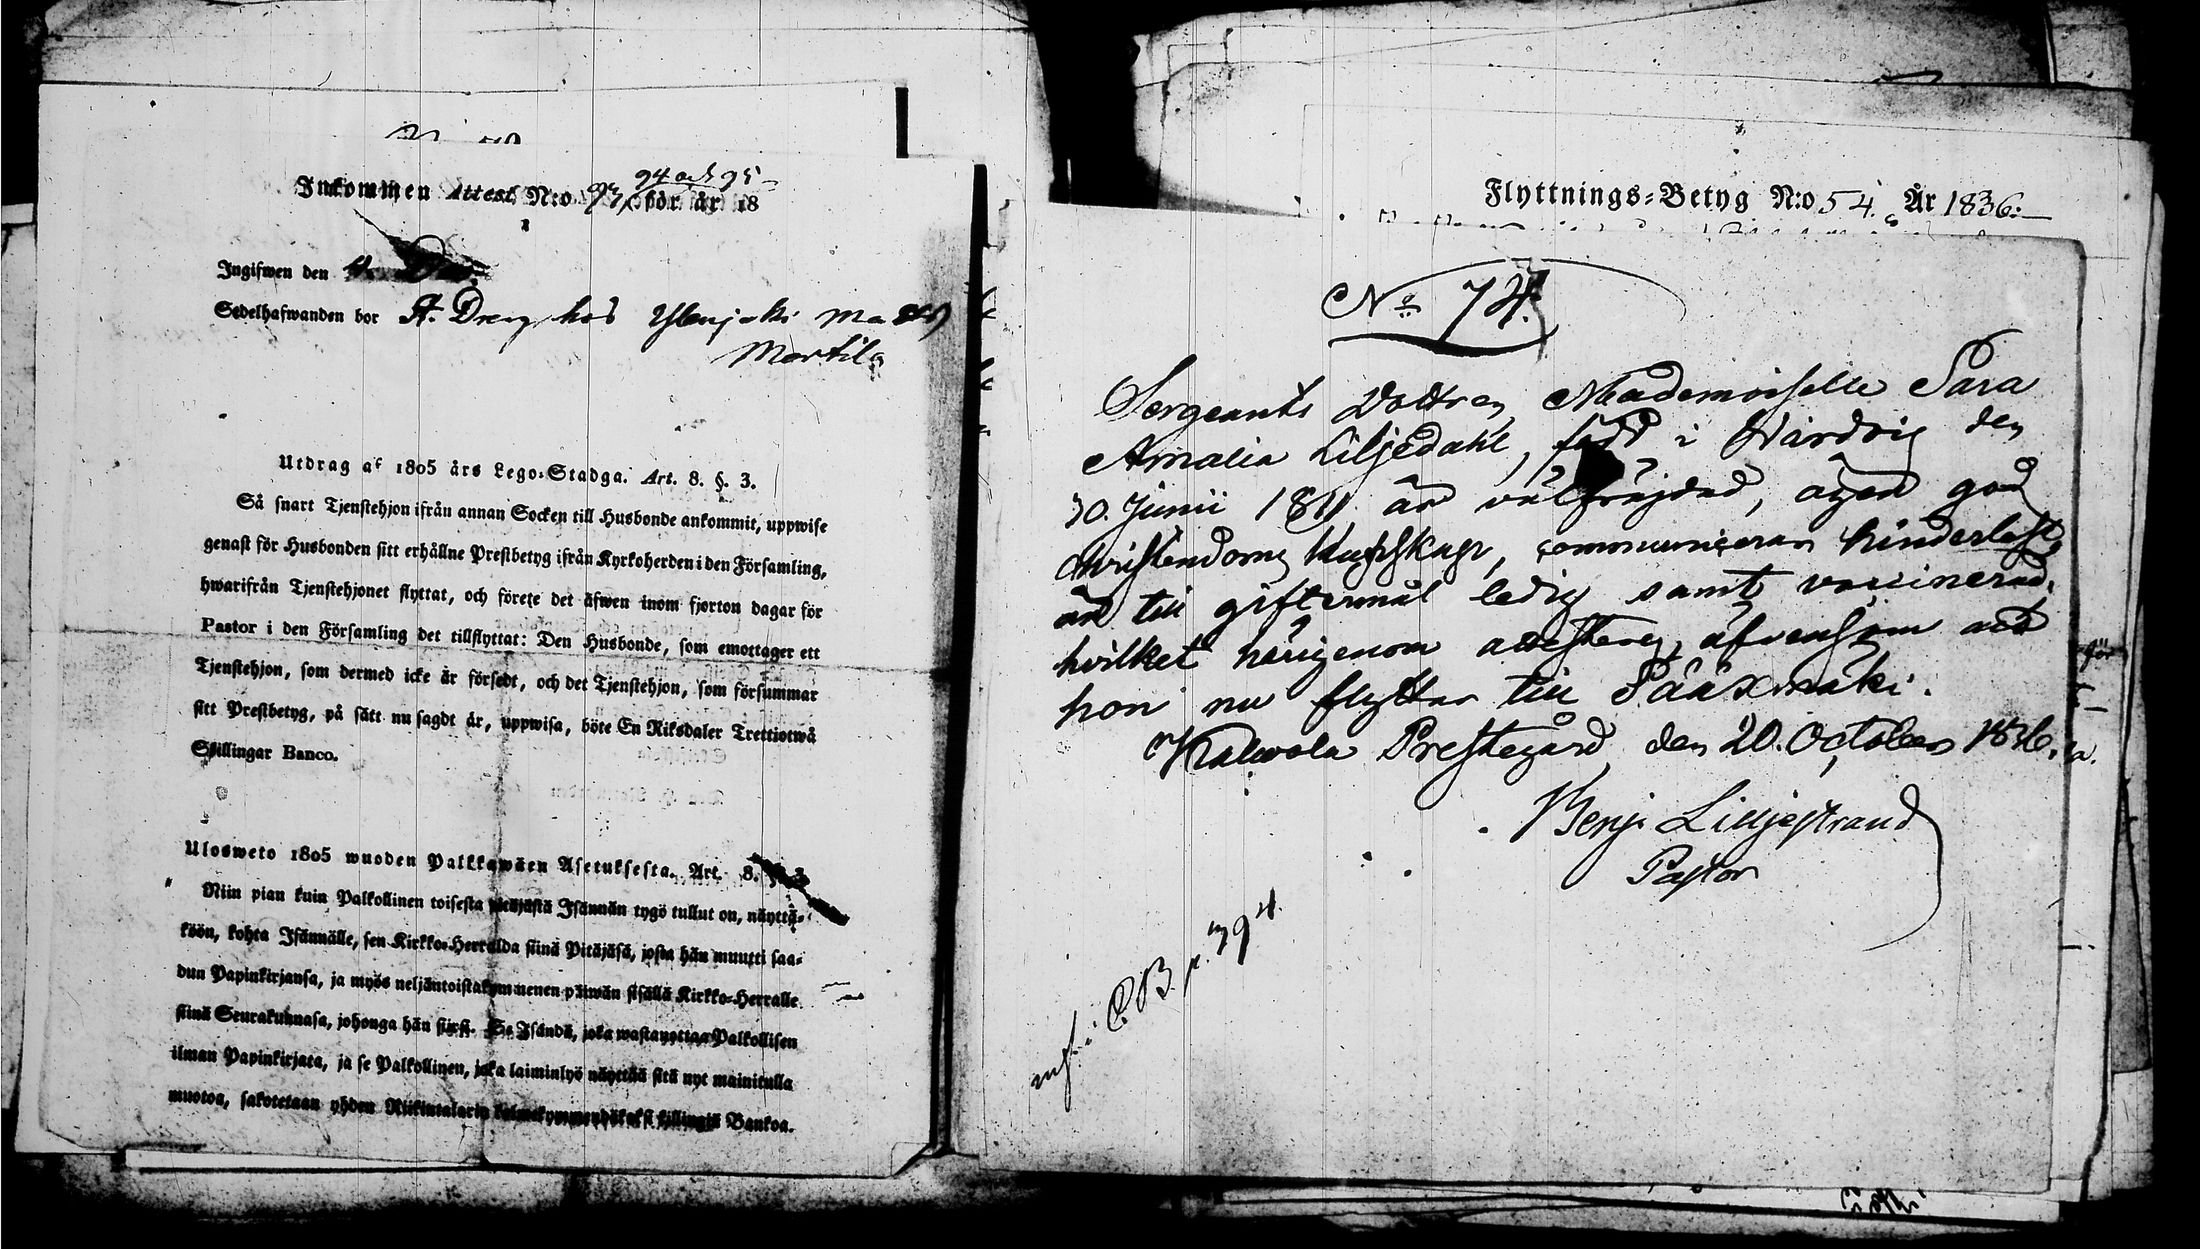 Inkommen Attest N:o 93, 94 och 95 för år 18
Ingifwen den
Sedelhafwanden bor hos
Mertila
Utdrag af 1805 års Lego-Stadga. Art. 8. §. 3.
Så snart Tjenstehjon ifrån annan Socken till Husbonde ankommit, uppwise
genast för Husbonden sitt erhållne Prestbetyg ifrån Kyrkoherden i den Församling,
hwarifrån Tjenstehjonet flyttat, och förete det äfwen inom fjorton dagar för
Pastor i den Församling det tillflyttat: Den Husbonde, som emottager ett
Tjenstehjon, som dermed icke är försedt, och det Tjenstehjon, som försummar
sitt Prestbetyg, på sätt nu sagdt är, uppwisa, böte En Riksdaler Trettiotwå
Skillingar Banco.
Ulosweto 1805 wuoden Palkkawäen Asetuksesta. Art. 8. §. 3
Niin pian kuin Palkollinen toisesta pitäjästä Isännän tygö tullut on, näyttä-
köön, kohta Isännälle, sen Kirkko-Herralda siinä Pitäjäsä, josta hän muutti saa-
dun Papinkirjansa, ja myös neljäntoistakymmenen päiwän sisällä Kirkko-Herralle
siinä Seurakunnasa, johonga hän siirsi. Se Isändä, joka wastanottaa Palkollisen
ilman Papinkirjata, ja se Palkollinen, joka laiminlyö näyttää sitä nyt mainitulla
muotoa, sakotetaan yhden Riikintalarin kolmekymmendäkaksi killingiä Bankoa.
Flyttnings-Betyg N:o 54. År 1836.
No 74.
Sergeants Dottren Mademoiselle Sara
Amalia Liljedahl, född i Närdvig den
30. Junii 1811 är välfräjdad, ägen god
christendoms kunskap, communicerar hinderlöst,
är till giftermål ledig samt vaccinerad,
hvilket härigenom attesteras, äfvensom att
hon nu flyttar till Sääxmäki.
Kalwola Prestegård den 20. October 1836.
Benj. Lilljestrand
Pastor
inf. i C.B. p. 394.